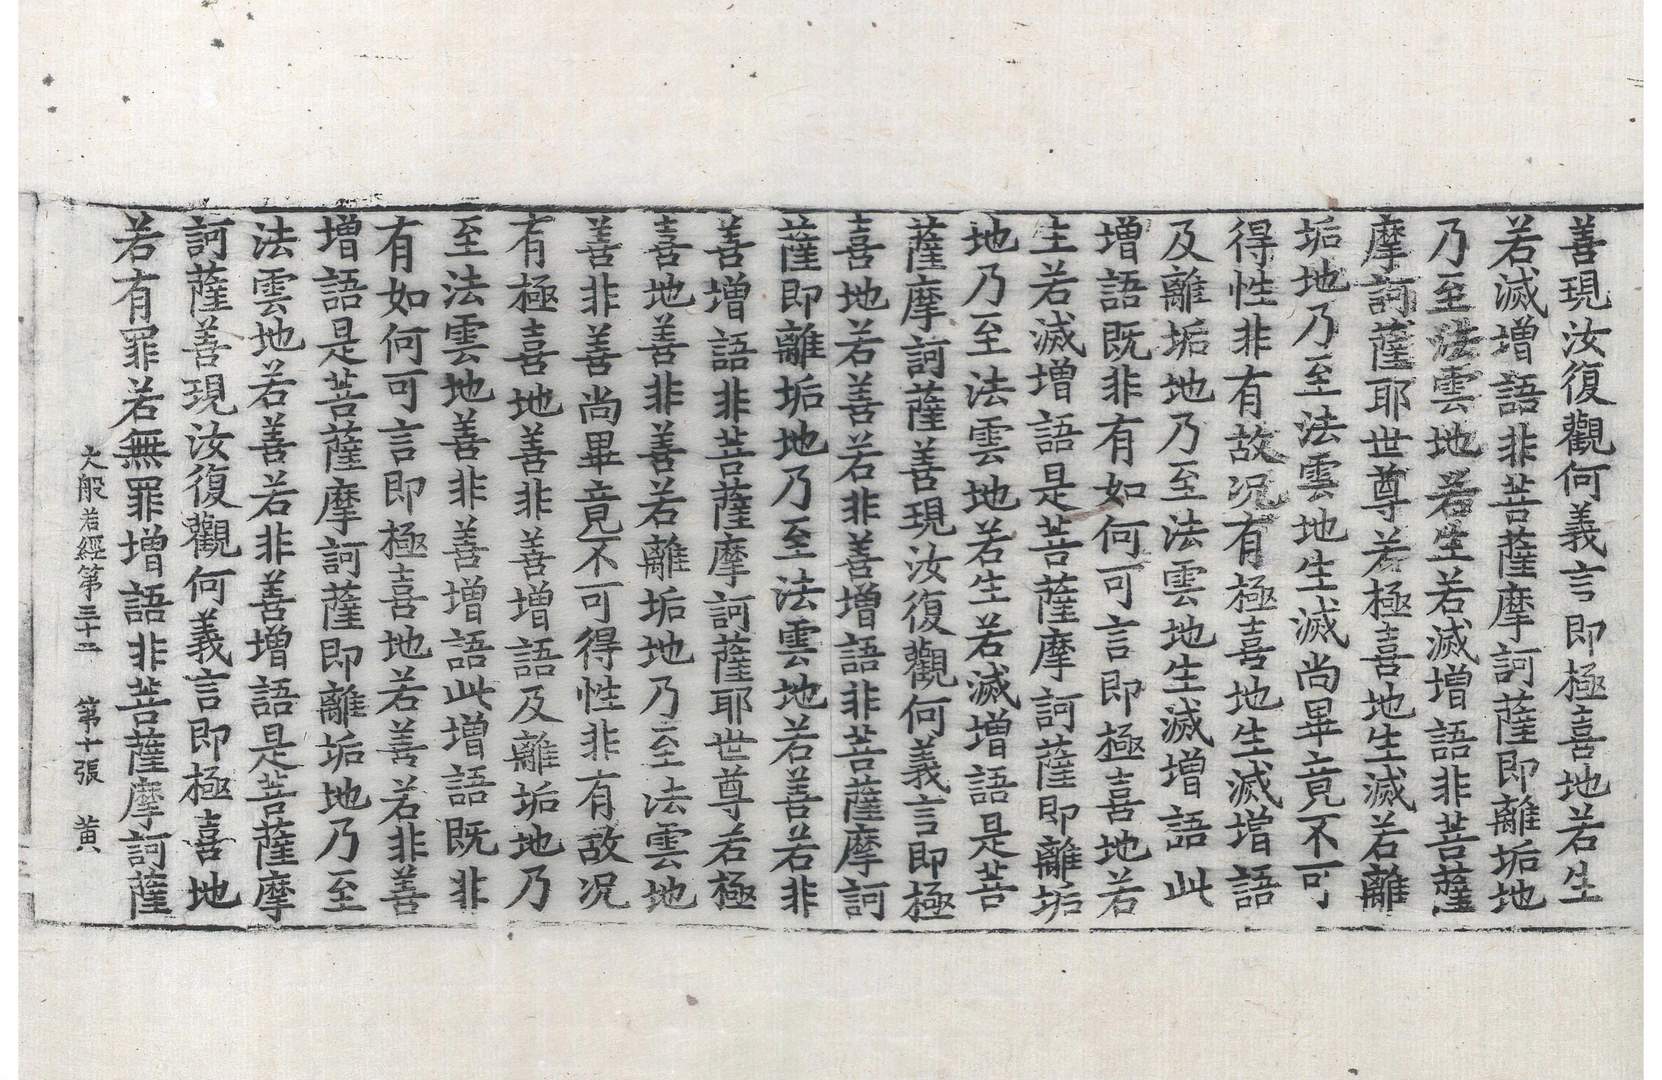 善現汝復觀何義言即極喜地若生
若滅增語非菩薩摩訶薩即離垢地
乃至法雲地若生若滅增語非菩薩
摩訶薩耶世尊若極喜地生滅若離
垢地乃至法雲地生滅尚畢竟不可
得性非有故况有極喜地生滅增語
及離垢地乃至法雲地生滅增語此
增語既非有如何可言即極喜地若
生若滅增語是菩薩摩訶薩即離垢
地乃至法雲地若生若滅增語是菩
薩摩訶薩善現汝復觀何義言即極
喜地若善若非善增語非菩薩摩訶
薩即離垢地乃至法雲地若善若非
善增語非菩薩摩訶薩耶世尊若極
喜地善非善若離垢地乃至法雲地
善非善尚畢竟不可得性非有故况
有極喜地善非善增語及離垢地乃
至法雲地善非善增語此增語既非
有如何可言即極喜地若善若非善
增語是菩薩摩訶薩即離垢地乃至
法雲地若善若非善增語是菩薩摩
訶薩善現汝復觀何義言即極喜地
若有罪若無罪增語非菩薩摩訶薩
大般若經第三十二　第十張　黃